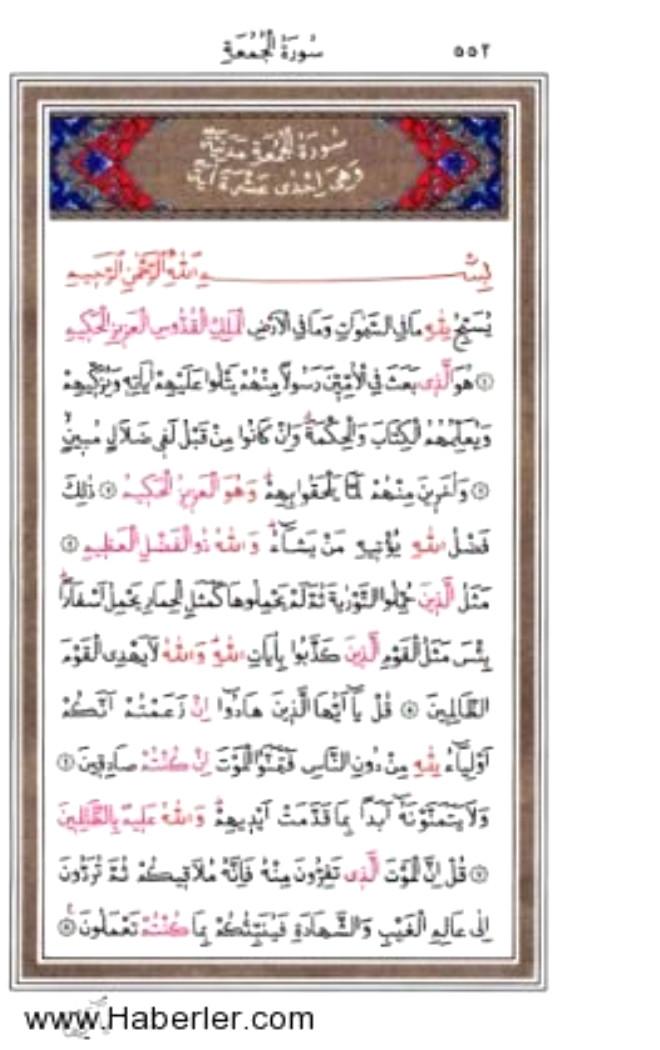 سُورَةُ الْجُمُعَةِ ٥٥٢
سُورَةُ الْجُمُعَةِ مَدَنِيَّةٌ
وَهِيَ اِحْدٰى عَشْرَةَ اٰيَةً
بِسْمِ اللّٰهِ الرَّحْمٰنِ الرَّحِيمِ
يُسَبِّحُ لِلّٰهِ مَا فِي السَّمٰوَاتِ وَمَا فِي الْاَرْضِ الْمَلِكِ الْقُدُّوسِ الْعَزِيزِ الْحَكِيمِ
١ هُوَ الَّذِى بَعَثَ فِي الْاُمِّيّنَ رَسُولًا مِنْهُمْ يَتْلُوا عَلَيْهِمْ اٰيَاتِهِ وَيُزَكِّيهِمْ
وَيُعَلِّمُهُمُ الْكِتَابَ وَالْحِكْمَةَ وَاِنْ كَانُوا مِنْ قَبْلُ لَفِي ضَلَالٍ مُبِينٍ
٢ وَاٰخَرِينَ مِنْهُمْ لَمَّا يَلْحَقُوا بِهِمْ وَهُوَ الْعَزِيزُ الْحَكِيمُ ٣ ذٰلِكَ
فَضْلُ اللّٰهِ يُؤْتِيهِ مَنْ يَشَاءُ وَاللّٰهُ ذُو الْفَضْلِ الْعَظِيمِ ٤
مَثَلُ الَّذِينَ حُمِّلُوا التَّوْرٰيةَ ثُمَّ لَمْ يَحْمِلُوهَا كَمَثَلِ الْحِمَارِ يَحْمِلُ اَسْفَارًا
بِئْسَ مَثَلُ الْقَوْمِ الَّذِينَ كَذَّبُوا بِاٰيَاتِ اللّٰهِ وَاللّٰهُ لَا يَهْدِى الْقَوْمَ
الظَّالِمِينَ ٥ قُلْ يَا اَيُّهَا الَّذِينَ هَادُوا اِنْ زَعَمْتُمْ اَنَّكُمْ
اَوْلِيَاءُ لِلّٰهِ مِنْ دُونِ النَّاسِ فَتَمَنَّوُا الْمَوْتَ اِنْ كُنْتُمْ صَادِقِينَ ٦
وَلَا يَتَمَنَّوْنَهُ اَبَدًا بِمَا قَدَّمَتْ اَيْدِيهِمْ وَاللّٰهُ عَلِيمٌ بِالظَّالِمِينَ
٧ قُلْ اِنَّ الْمَوْتَ الَّذِى تَفِرُّونَ مِنْهُ فَاِنَّهُ مُلَاقِيكُمْ ثُمَّ تُرَدُّونَ
اِلٰى عَالِمِ الْغَيْبِ وَالشَّهَادَةِ فَيُنَبِّئُكُمْ بِمَا كُنْتُمْ تَعْمَلُونَ ٨
www.Haberler.com